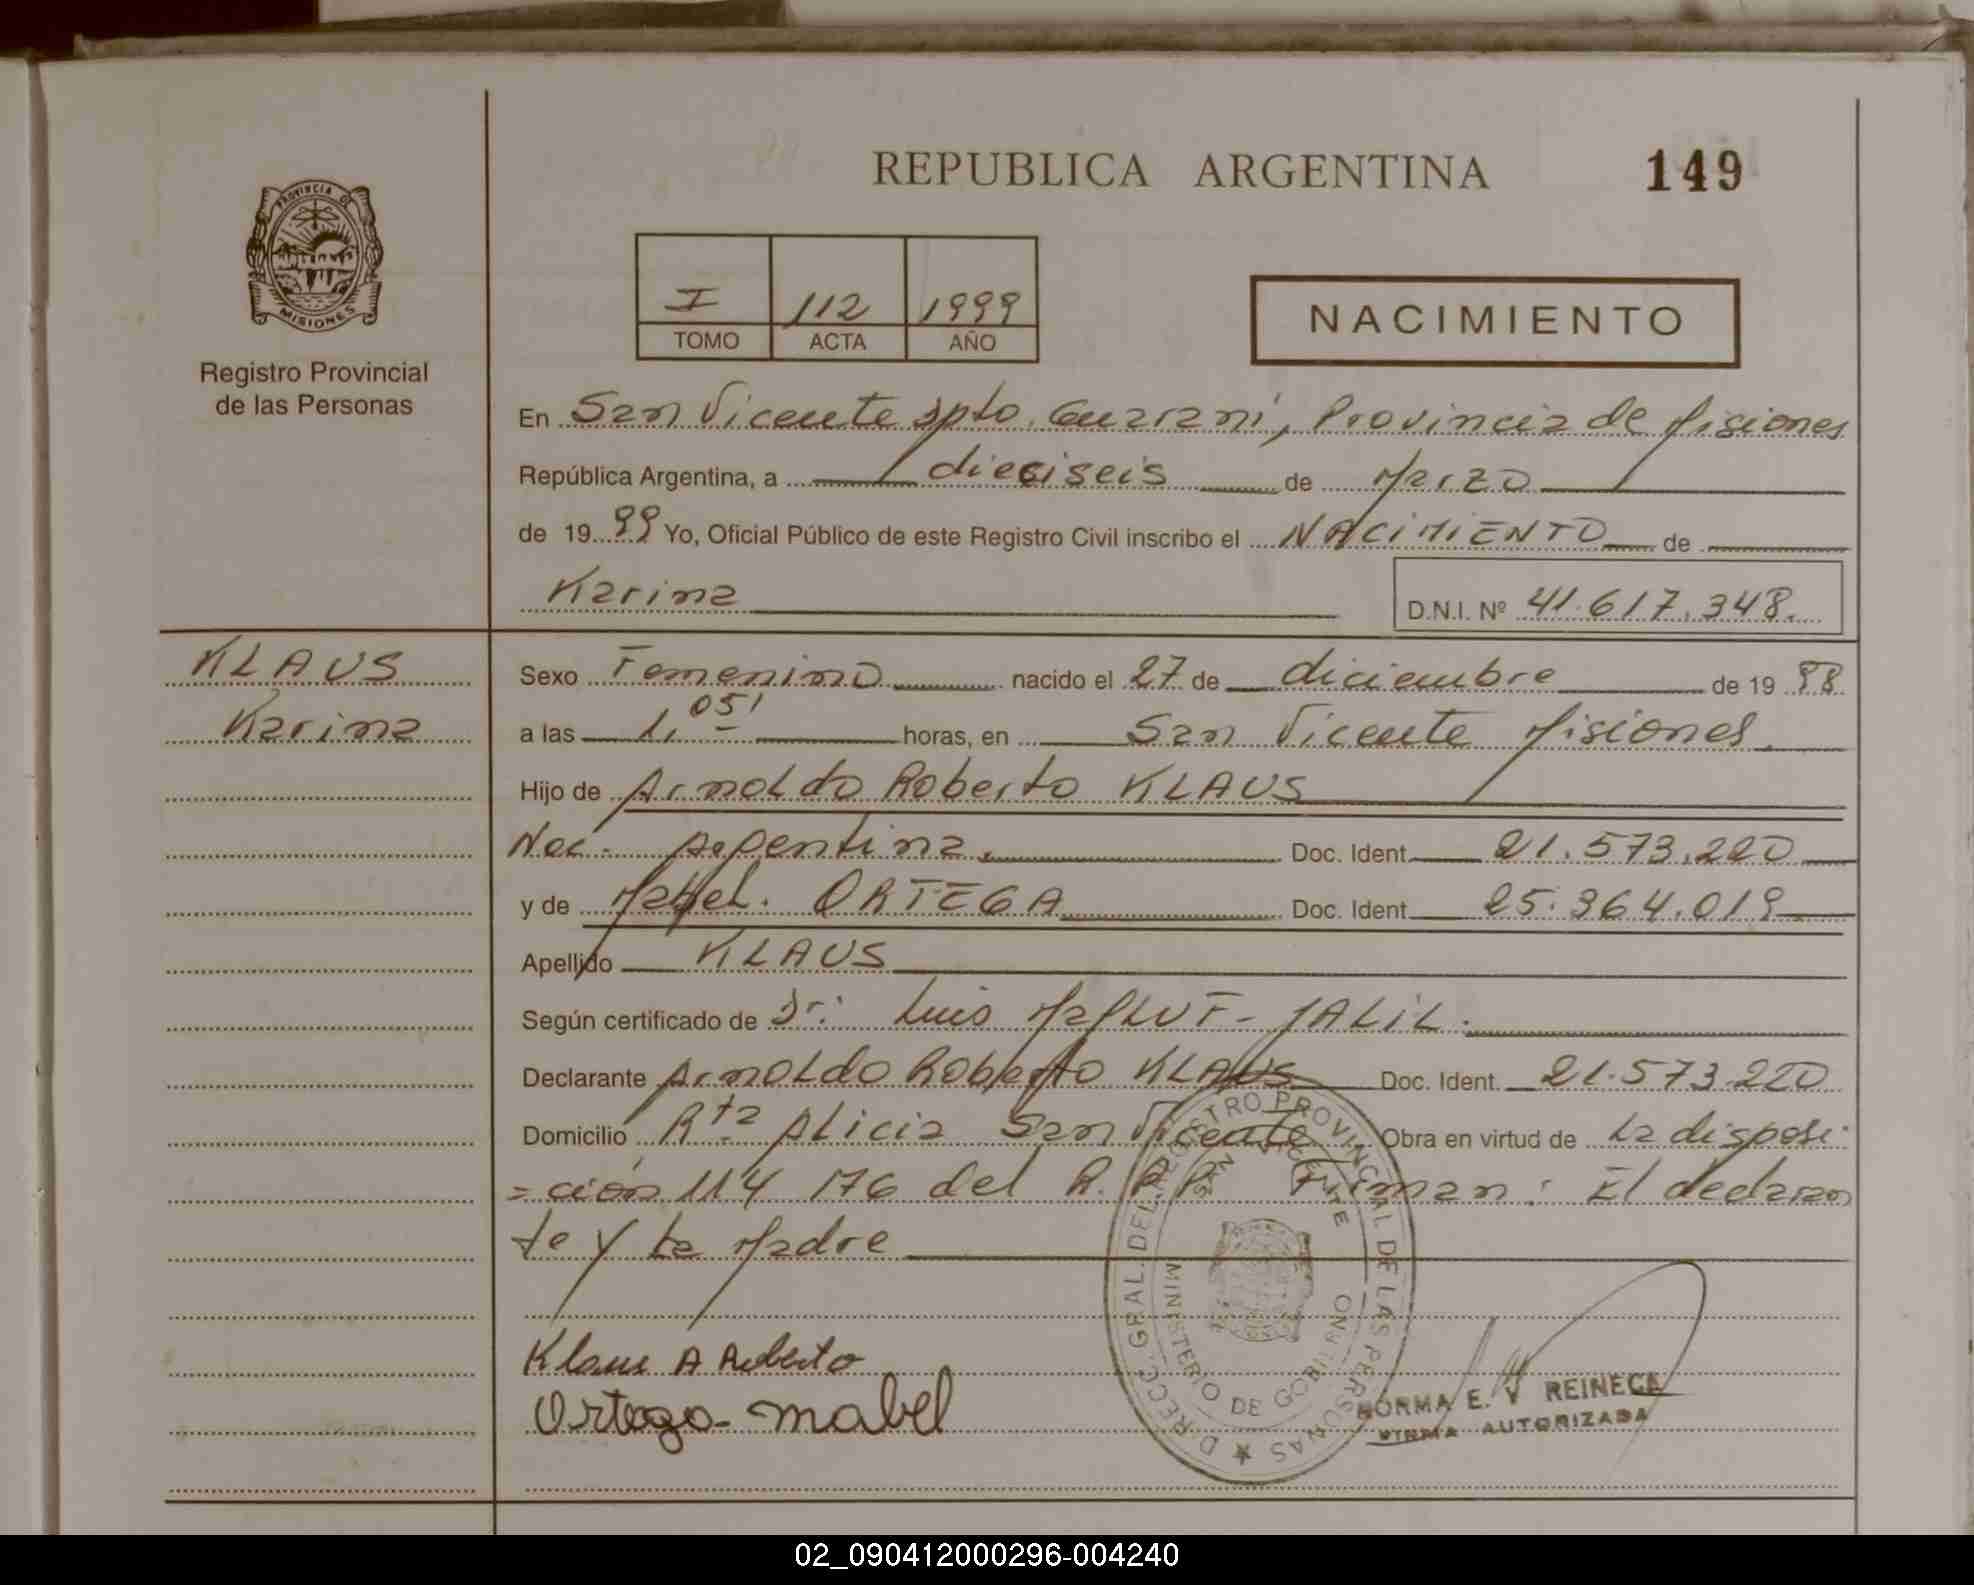 REPUBLICA ARGENTINA
149
PROVINCIA DE
MISIONES
Registro Provincial
de las Personas
I 112 1999
TOMO ACTA AÑO
NACIMIENTO
En San Vicente Dpto. Guarani, Provincia de Misiones
República Argentina, a dieciseis de Marzo
de 1999 Yo, Oficial Público de este Registro Civil inscribo el NACIMIENTO de
Karina D.N.I. Nº 41.617.348.
KLAUS
Karina
Sexo Femenino nacido el 27 de diciembre de 1998
a las 1,05' horas, en San Vicente Misiones.
Hijo de Arnoldo Roberto KLAUS
Nac. Argentina. Doc. Ident. 21.573.220
y de Mabel. ORTEGA Doc. Ident. 25.364.019
Apellido KLAUS
Según certificado de Dr: Luis MALUF- JALIL.
Declarante Arnoldo Roberto KLAUS Doc. Ident. 21.573.220
Domicilio Rta Alicia San Vicente Obra en virtud de La disposi-
=ción 114 176 del R.P.P. Firman: El declaran
te y La Madre
Klaus A Roberto
Ortega Mabel
DIRECC. GRAL. DEL REGISTRO PROVINCIAL DE LAS PERSONAS
SAN VICENTE
MINISTERIO DE GOBIERNO
NORMA E. V REINECA
FIRMA AUTORIZADA
02_090412000296-004240